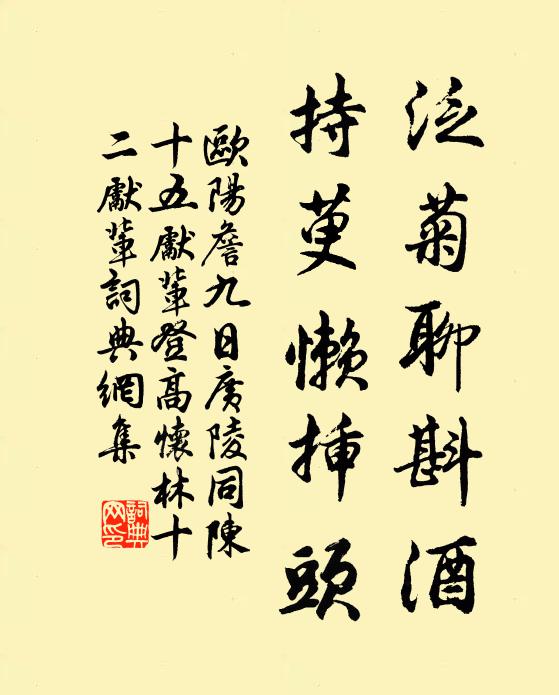 泛菊聊斟酒
持萸懒插頭
歐陽詹九日廣陵同陳
十五獻輩登高懷林十
二獻輩詞典網集
詞典
网印